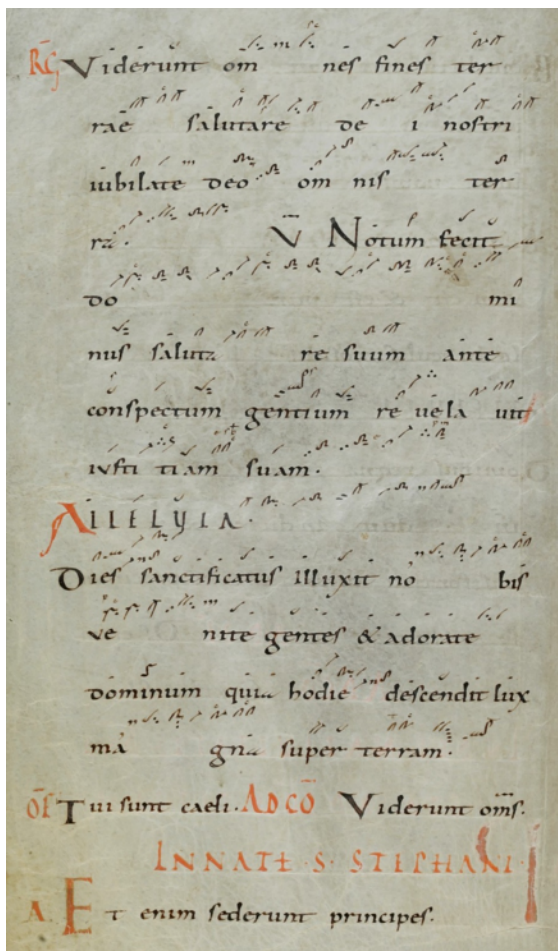 RG Viderunt om nes fines ter
rae salutare de i nostri
iubilate deo om nis ter
ra. V Notum fecit
do mi
nus saluta re suum ante
conspectum gentium re vela vit
iusti tiam suam.
ALLELUIA.
Dies sanctificatus illuxit no bis
ve nite gentes & adorate
dominum quia hodie descendit lux
ma gna super terram.
OF Tui sunt caeli. AD CŌ Viderunt om̄s.
IN NATE · S · STEPHANI
A. Et enim sederunt principes.